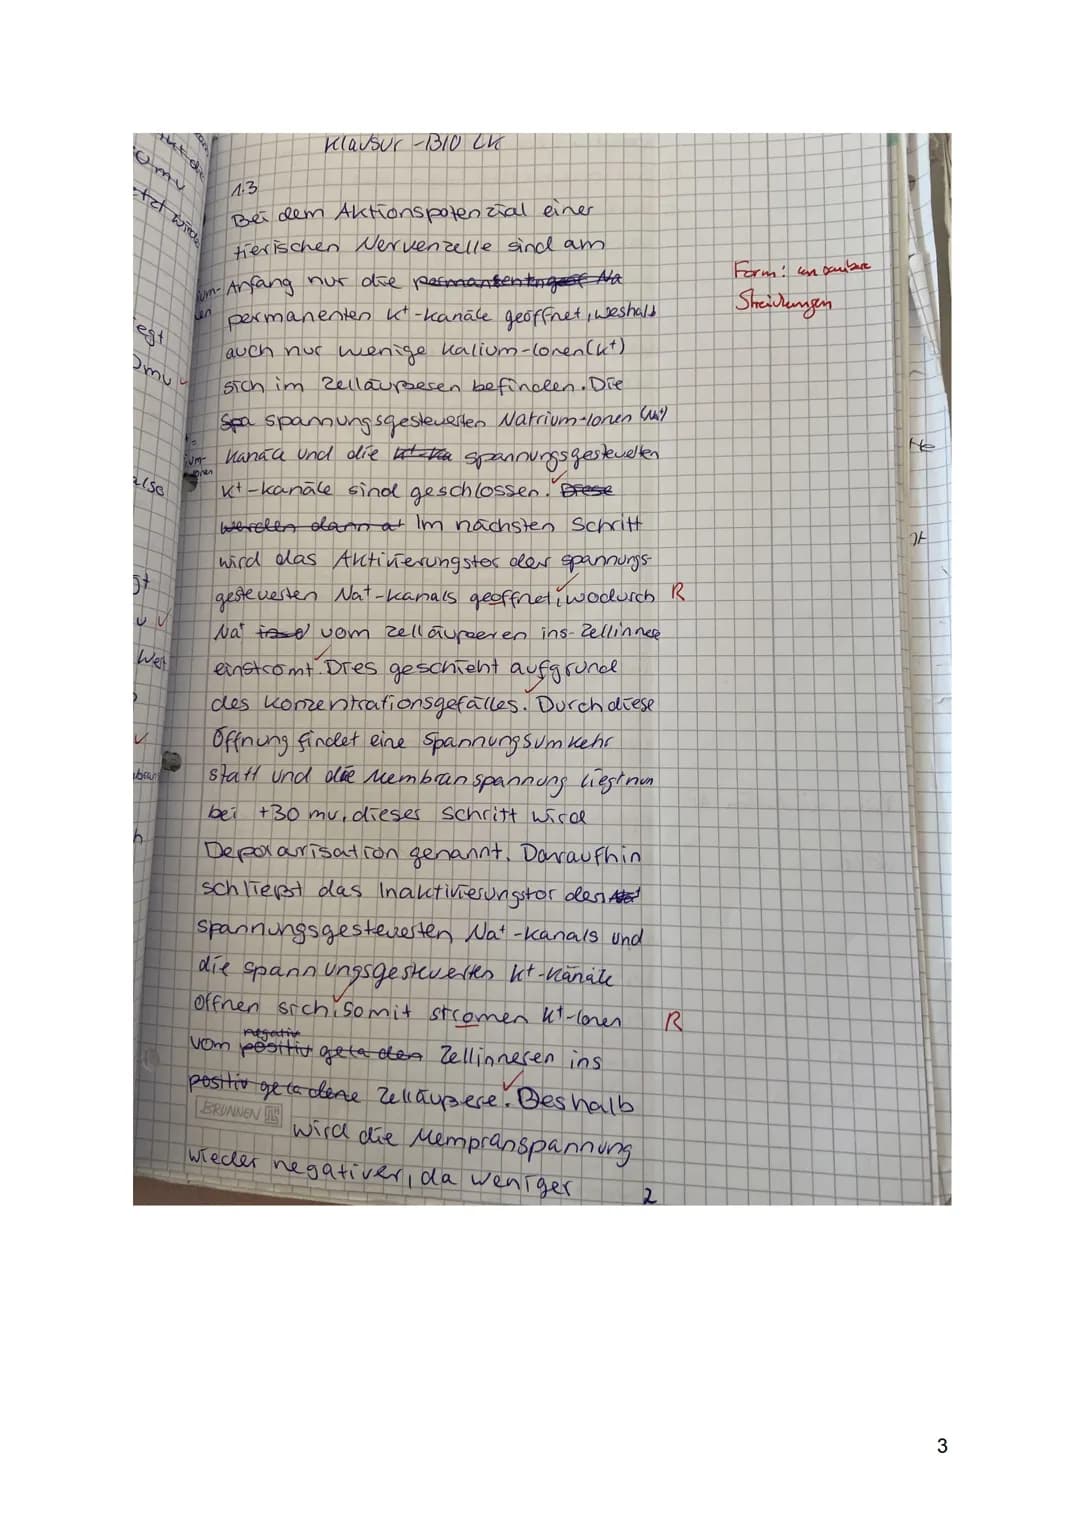 Klausur - BIO LK
1.3
Bei dem Aktionspotenzial einer
tierischen Nervenzelle sind am
Anfang nur die
permanenten K+-Kanäle geöffnet, weshalb
auch nur wenige Kalium-Ionen (K+)
sich im Zelläußeren befinden. Die
Spa spannungsgesteuerten Natrium-Ionen (Na+)
Kanäle und die spannungsgesteuerten
K+-Kanäle sind geschlossen. Diese
werden dann Im nächsten Schritt
wird das Aktivierungstor der spannungs-
gesteuerten Na+-Kanals geoffnet, wodurch R
Na+ vom Zelläußeren ins Zellinnere
einstromt. Dies geschieht aufgrund
des Konzentrationsgefälles. Durch diese
Öffnung findet eine Spannungsumkehr
statt und die Membranspannung liegt nun
bei +30 mV. dieses Schritt wird
Depolarisation genannt. Daraufhin
schließt das Inaktivierungstor des
spannungsgesteuerten Na+-Kanals und
die spannungsgesteuerten K+-Kanäle
öffnen sich, Somit stromen K+-Ionen R
negativ
vom positiv geladen Zellinneren ins
positiv geladene Zelläußere. Deshalb
BRUNNEN
wird die Mempranspannung
wieder negativer, da weniger
2
Form: unsaubere
Streichungen
egt
0mv
also
Wert
3